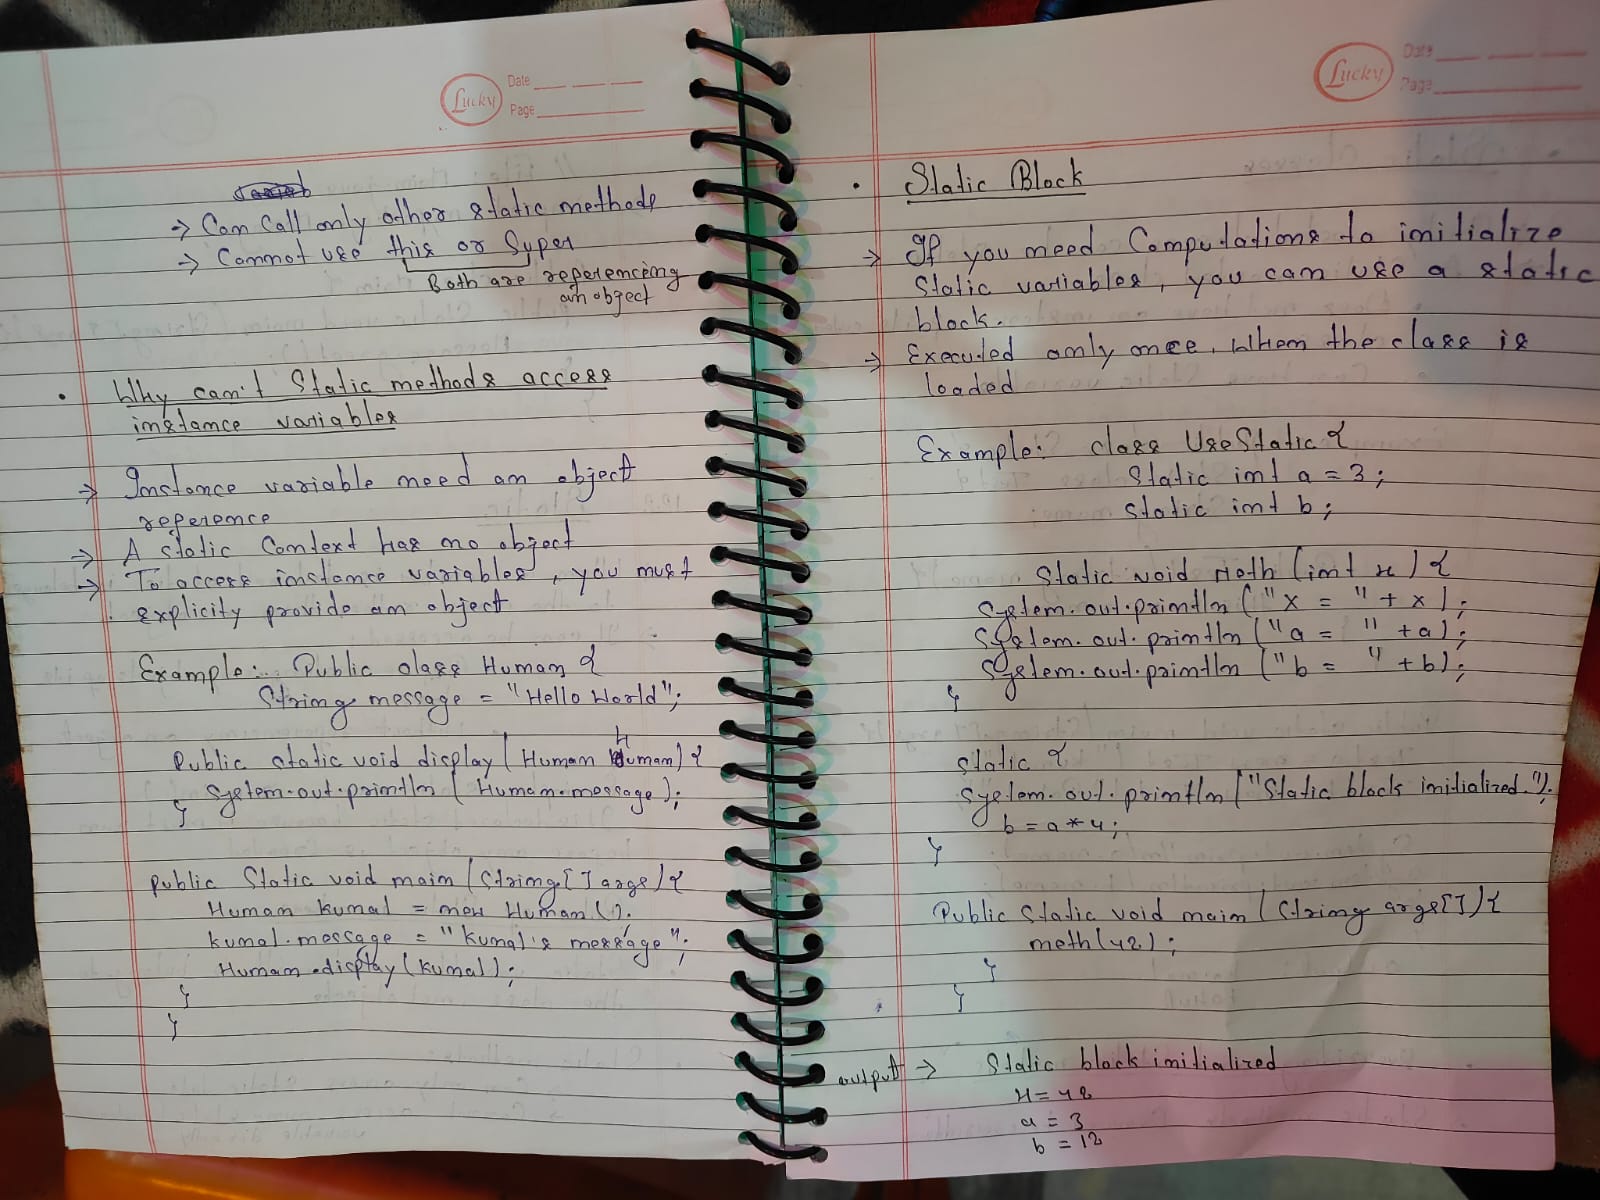 Lucky
Date
Page
→ Can Call only other static methods
→ Cannot use this or Super
Both are referencing
an object
• Why can't Static methods access
instance variables
→ Instance variable need an object
reference
→ A static Context has no object
→ To access instance variables, you must
explicity provide an object
Example: Public class Human {
String message = "Hello World";
Public static void display (Human Human) {
System.out.println (Human.message);
}
public Static void main (String[] args) {
Human kunal = new Human ();
kunal.message = "Kunal's message";
Human.display (kunal);
}
}
Lucky
Date
Page
• Static Block
→ If you need Computations to initialize
Static variables, you can use a static
block.
→ Executed only once, When the class is
loaded
Example: class UseStatic {
Static int a = 3;
Static int b;
Static void Meth (int x) {
System.out.println ("X = " + x);
System.out.println ("a = " +a);
System.out.println ("b = " +b);
}
static {
System.out.println ("Static block initialized.");
b = a * 4;
}
Public static void main (String args[]) {
meth (42);
}
}
output → Static block initialized
x = 42
a = 3
b = 12